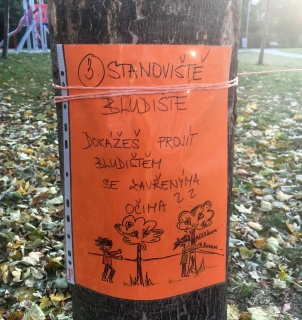 3 STANOVIŠTĚ
BLUDIŠTĚ
DOKÁŽEŠ PROJÍT
BLUDIŠTĚM
SE ZAVŘENÝMA
OČIMA ??